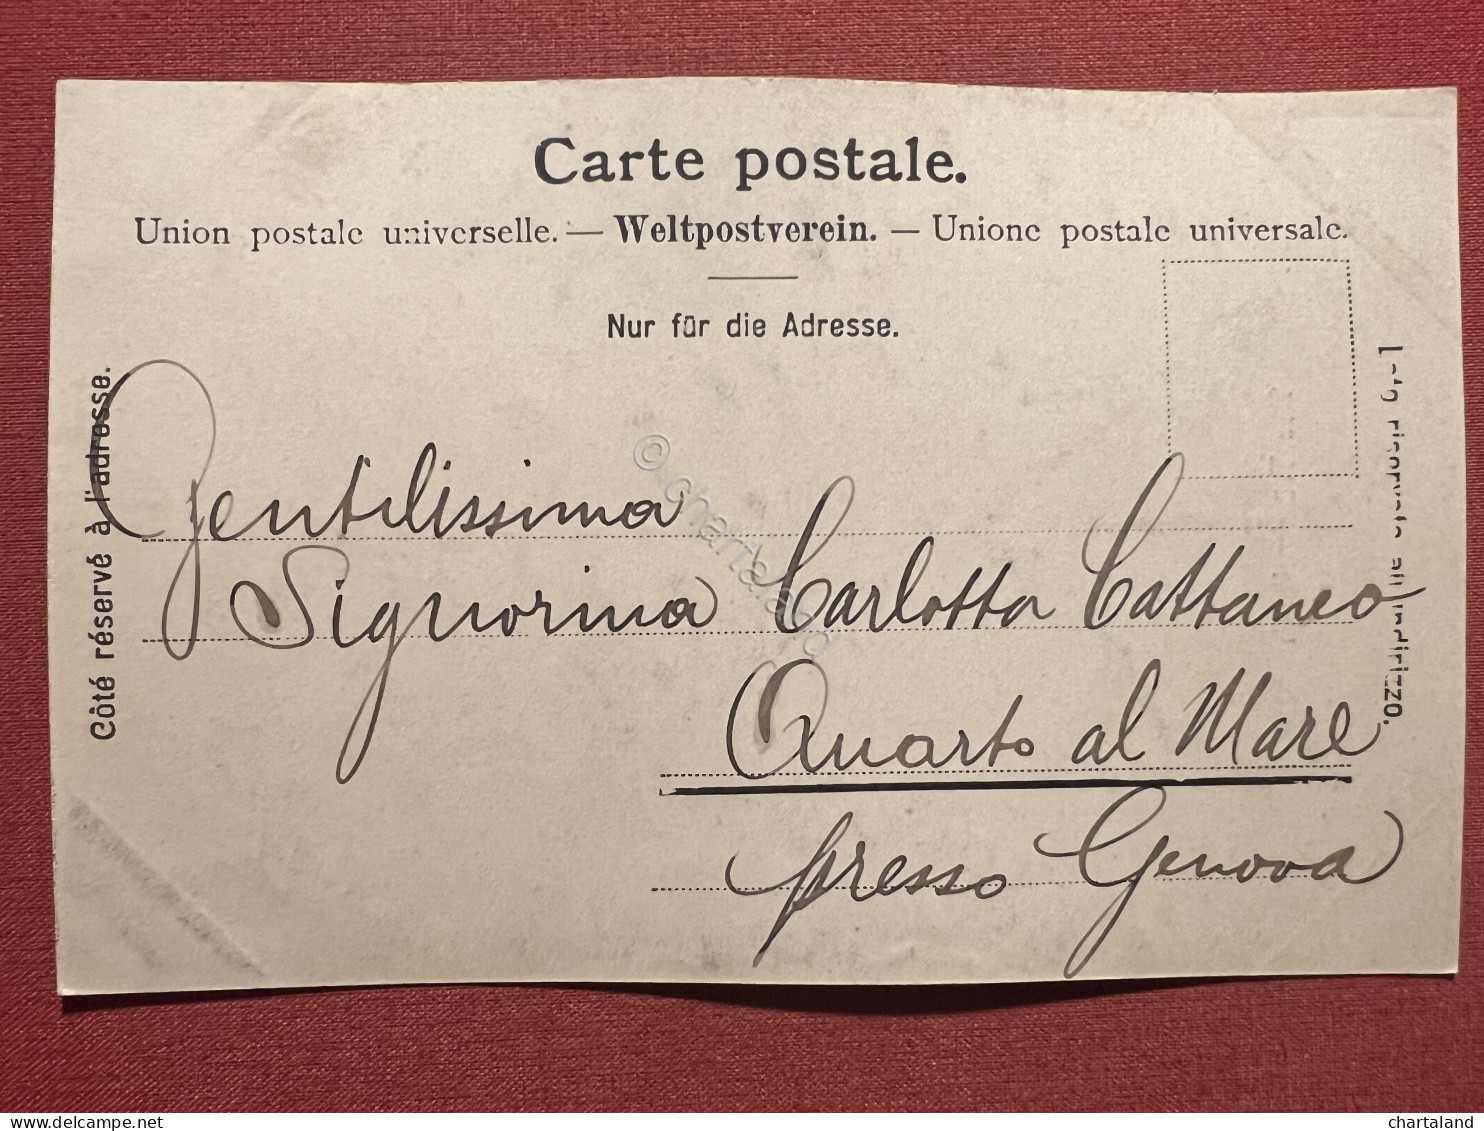 Carte postale.
Union postale universelle. — Weltpostverein. — Unione postale universale.
Nur für die Adresse.
Côté réservé à l'adresse.
Lato riservato all'indirizzo.
Gentilissima
Signorina Carlotta Cattaneo
Quarto al Mare
presso Genova
© chartaland
www.delcampe.net
chartaland